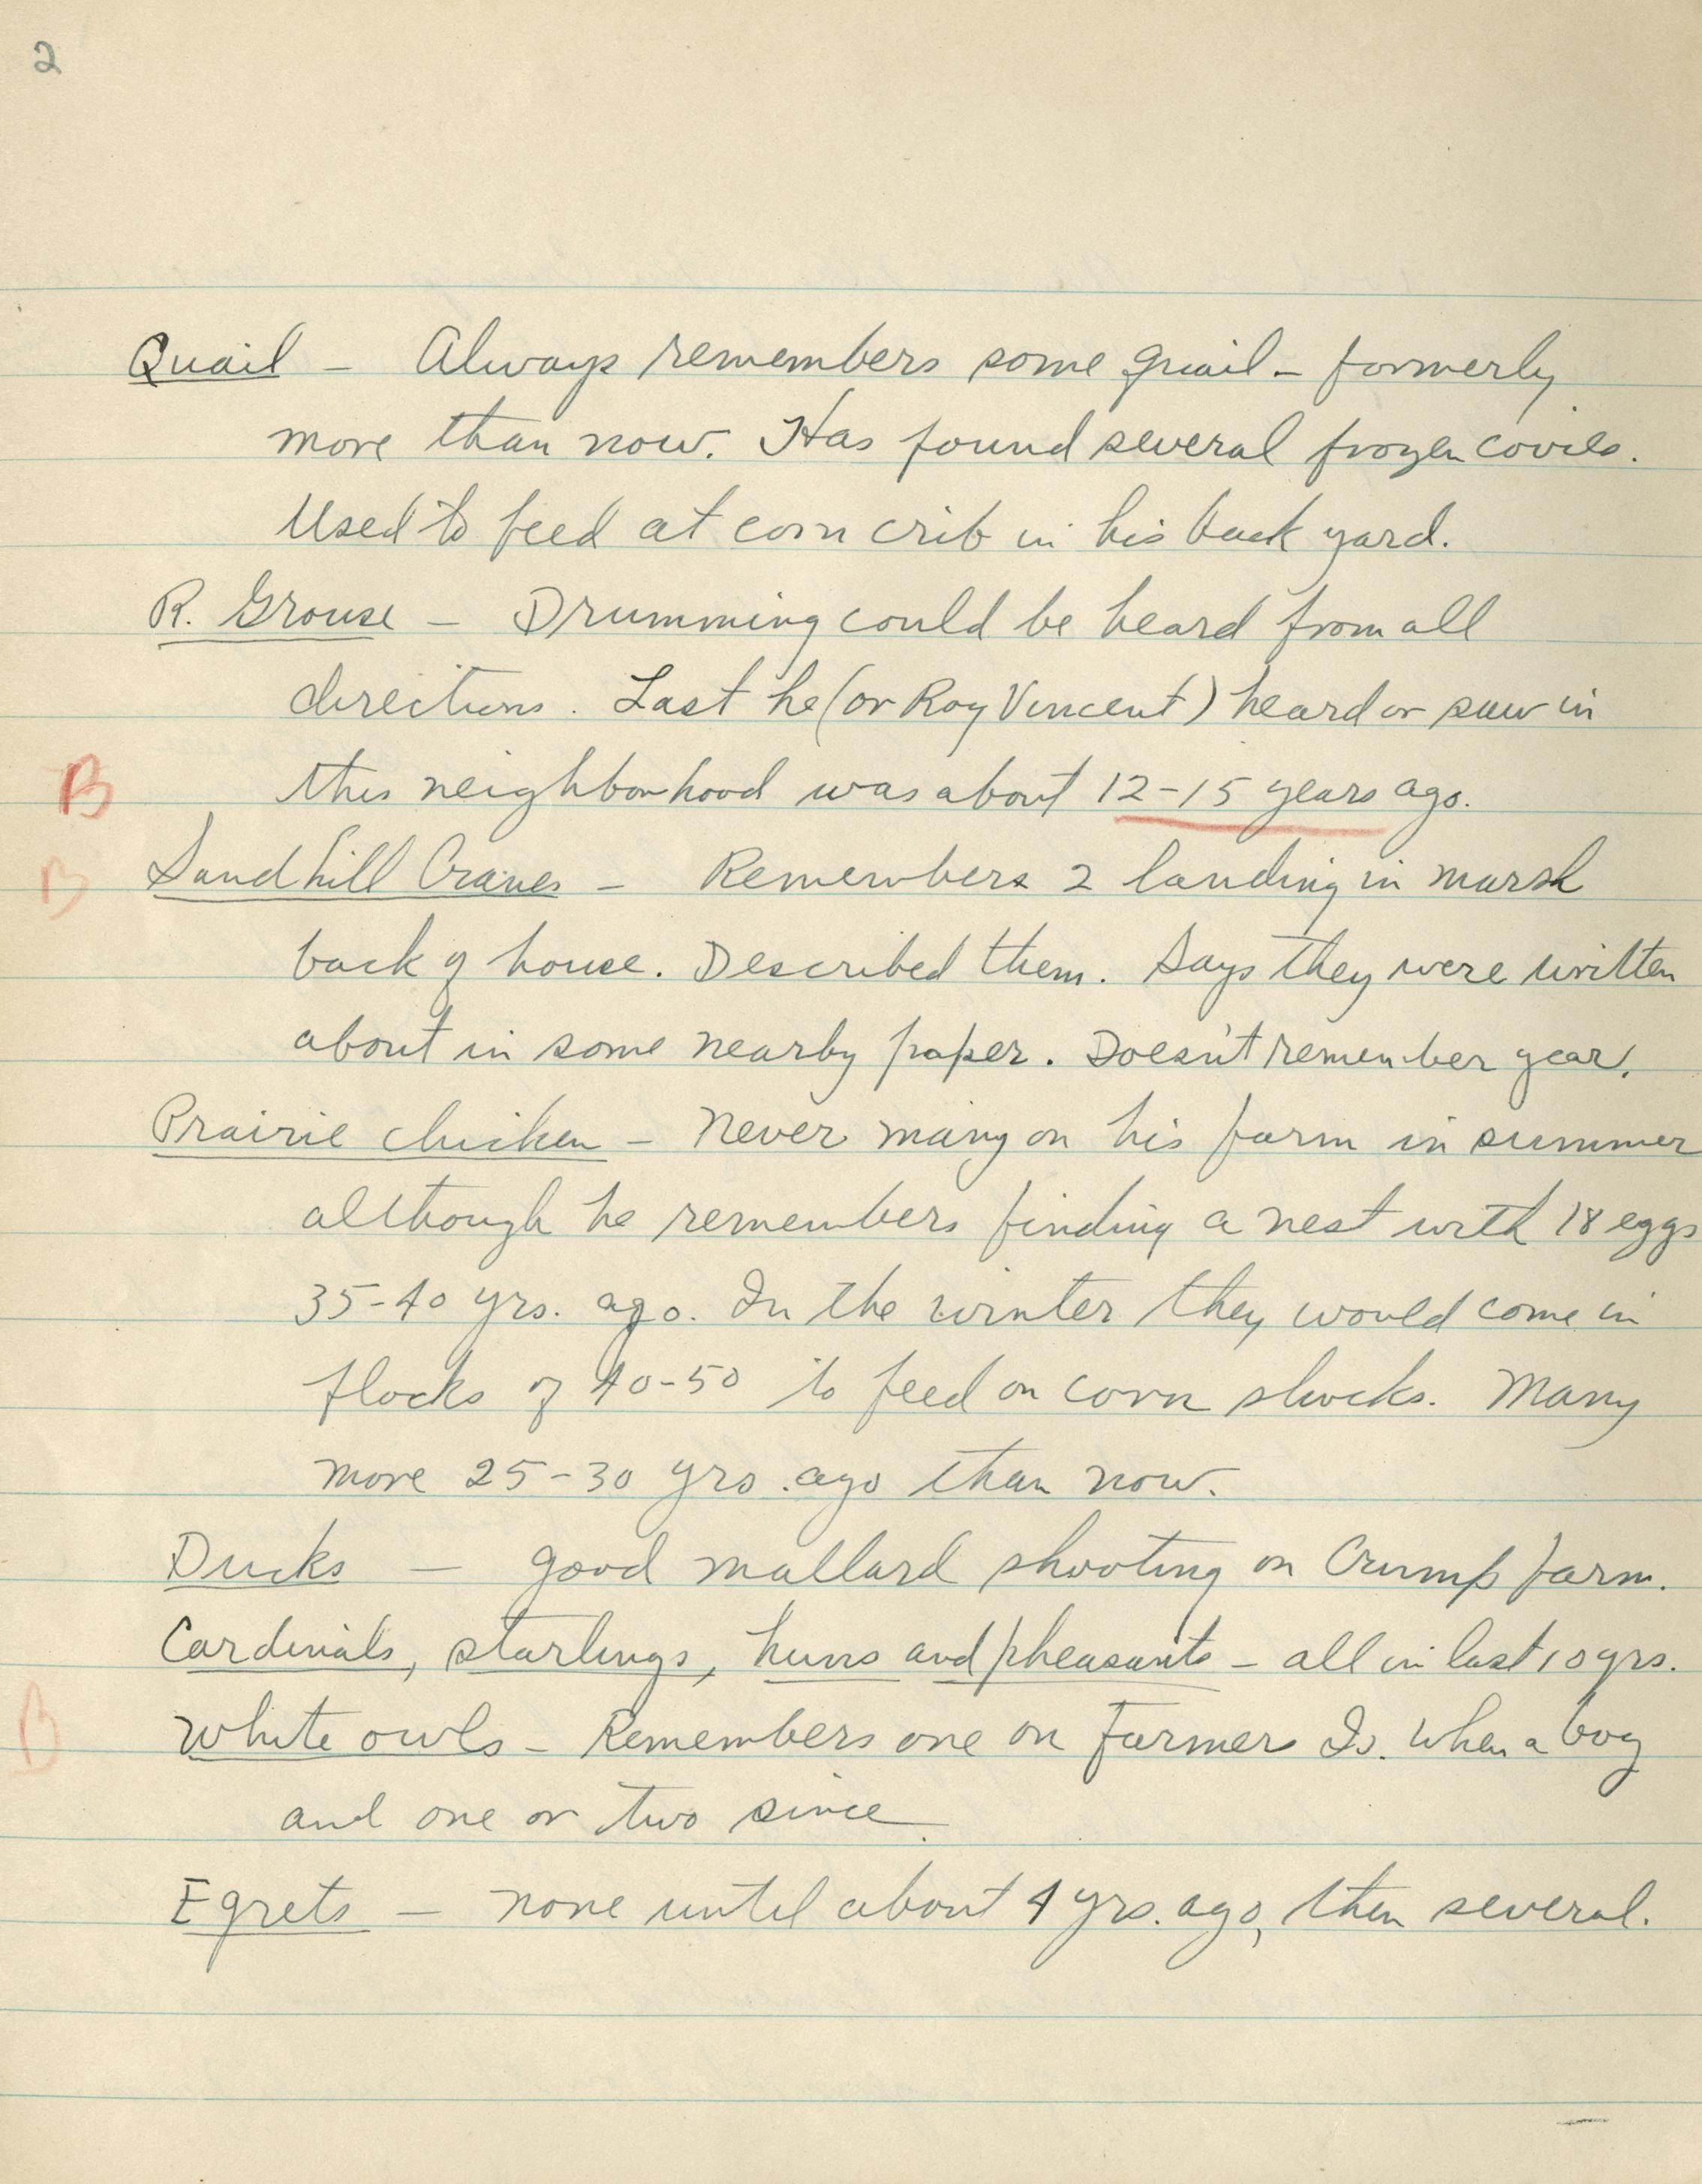 2
Quail - Always remembers some quail - formerly
more than now. Has found several frozen covies.
Used to feed at corn crib in his back yard.
R. Grouse - Drumming could be heard from all
directions. Last he (or Roy Vincent) heard or saw in
B this neighborhood was about 12-15 years ago.
B Sandhill Cranes - Remembers 2 landing in marsh
back of house. Described them. Says they were written
about in some nearby paper. Doesn't remember year.
Prairie chicken - Never many on his farm in summer
although he remembers finding a nest with 18 eggs
35-40 yrs. ago. In the winter they would come in
flocks of 40-50 to feed on corn shocks. Many
more 25-30 yrs. ago than now.
Ducks - good mallard shooting on Crump farm.
Cardinals, starlings, huns and pheasants - all in last 10 yrs.
B White owls - Remembers one on Farmers Is. when a boy
and one or two since.
Egrets - none until about 4 yrs. ago, then several.